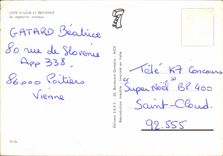 COTE D'AZUR ET PROVENCE
GATARD Béatrice
80 rue de Slovenie
App 338.
86000 Poitiers
Vienne
Télé K7 Concours
"Super Noël" BP 400
Saint-Cloud.
92.555